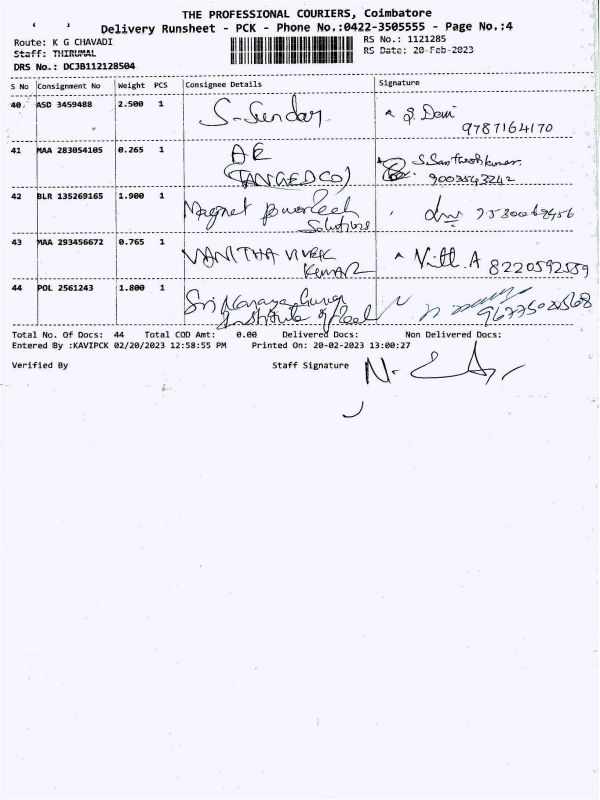 THE PROFESSIONAL COURIERS, Coimbatore
Delivery Runsheet - PCK - Phone No.:0422-3505555 - Page No.:4
Route: K G CHAVADI
RS No.: 1121285
Staff: THIRUMAL
RS Date: 20-Feb-2023
DRS No.: DCJB112128504
S No Consignment No Weight PCS Consignee Details Signature
40 ASD 3459488 2.500 1 S-Sundar
S. Devi
9787164170
41 MAA 283054105 0.265 1 AE
(TANGEDCO)
S.Santhoshkumar
9003543242
42 BLR 135269165 1.900 1 Magnet
Solutions
43 MAA 293456672 0.765 1 VANITHA VIVEK
KUMAR
8220592559
44 POL 2561243 1.800 1 Sri Narayana Guru
Institute of
Total No. Of Docs: 44 Total COD Amt: 0.00 Delivered Docs: Non Delivered Docs:
Entered By :KAVIPCK 02/20/2023 12:58:55 PM Printed On: 20-02-2023 13:00:27
Verified By Staff Signature